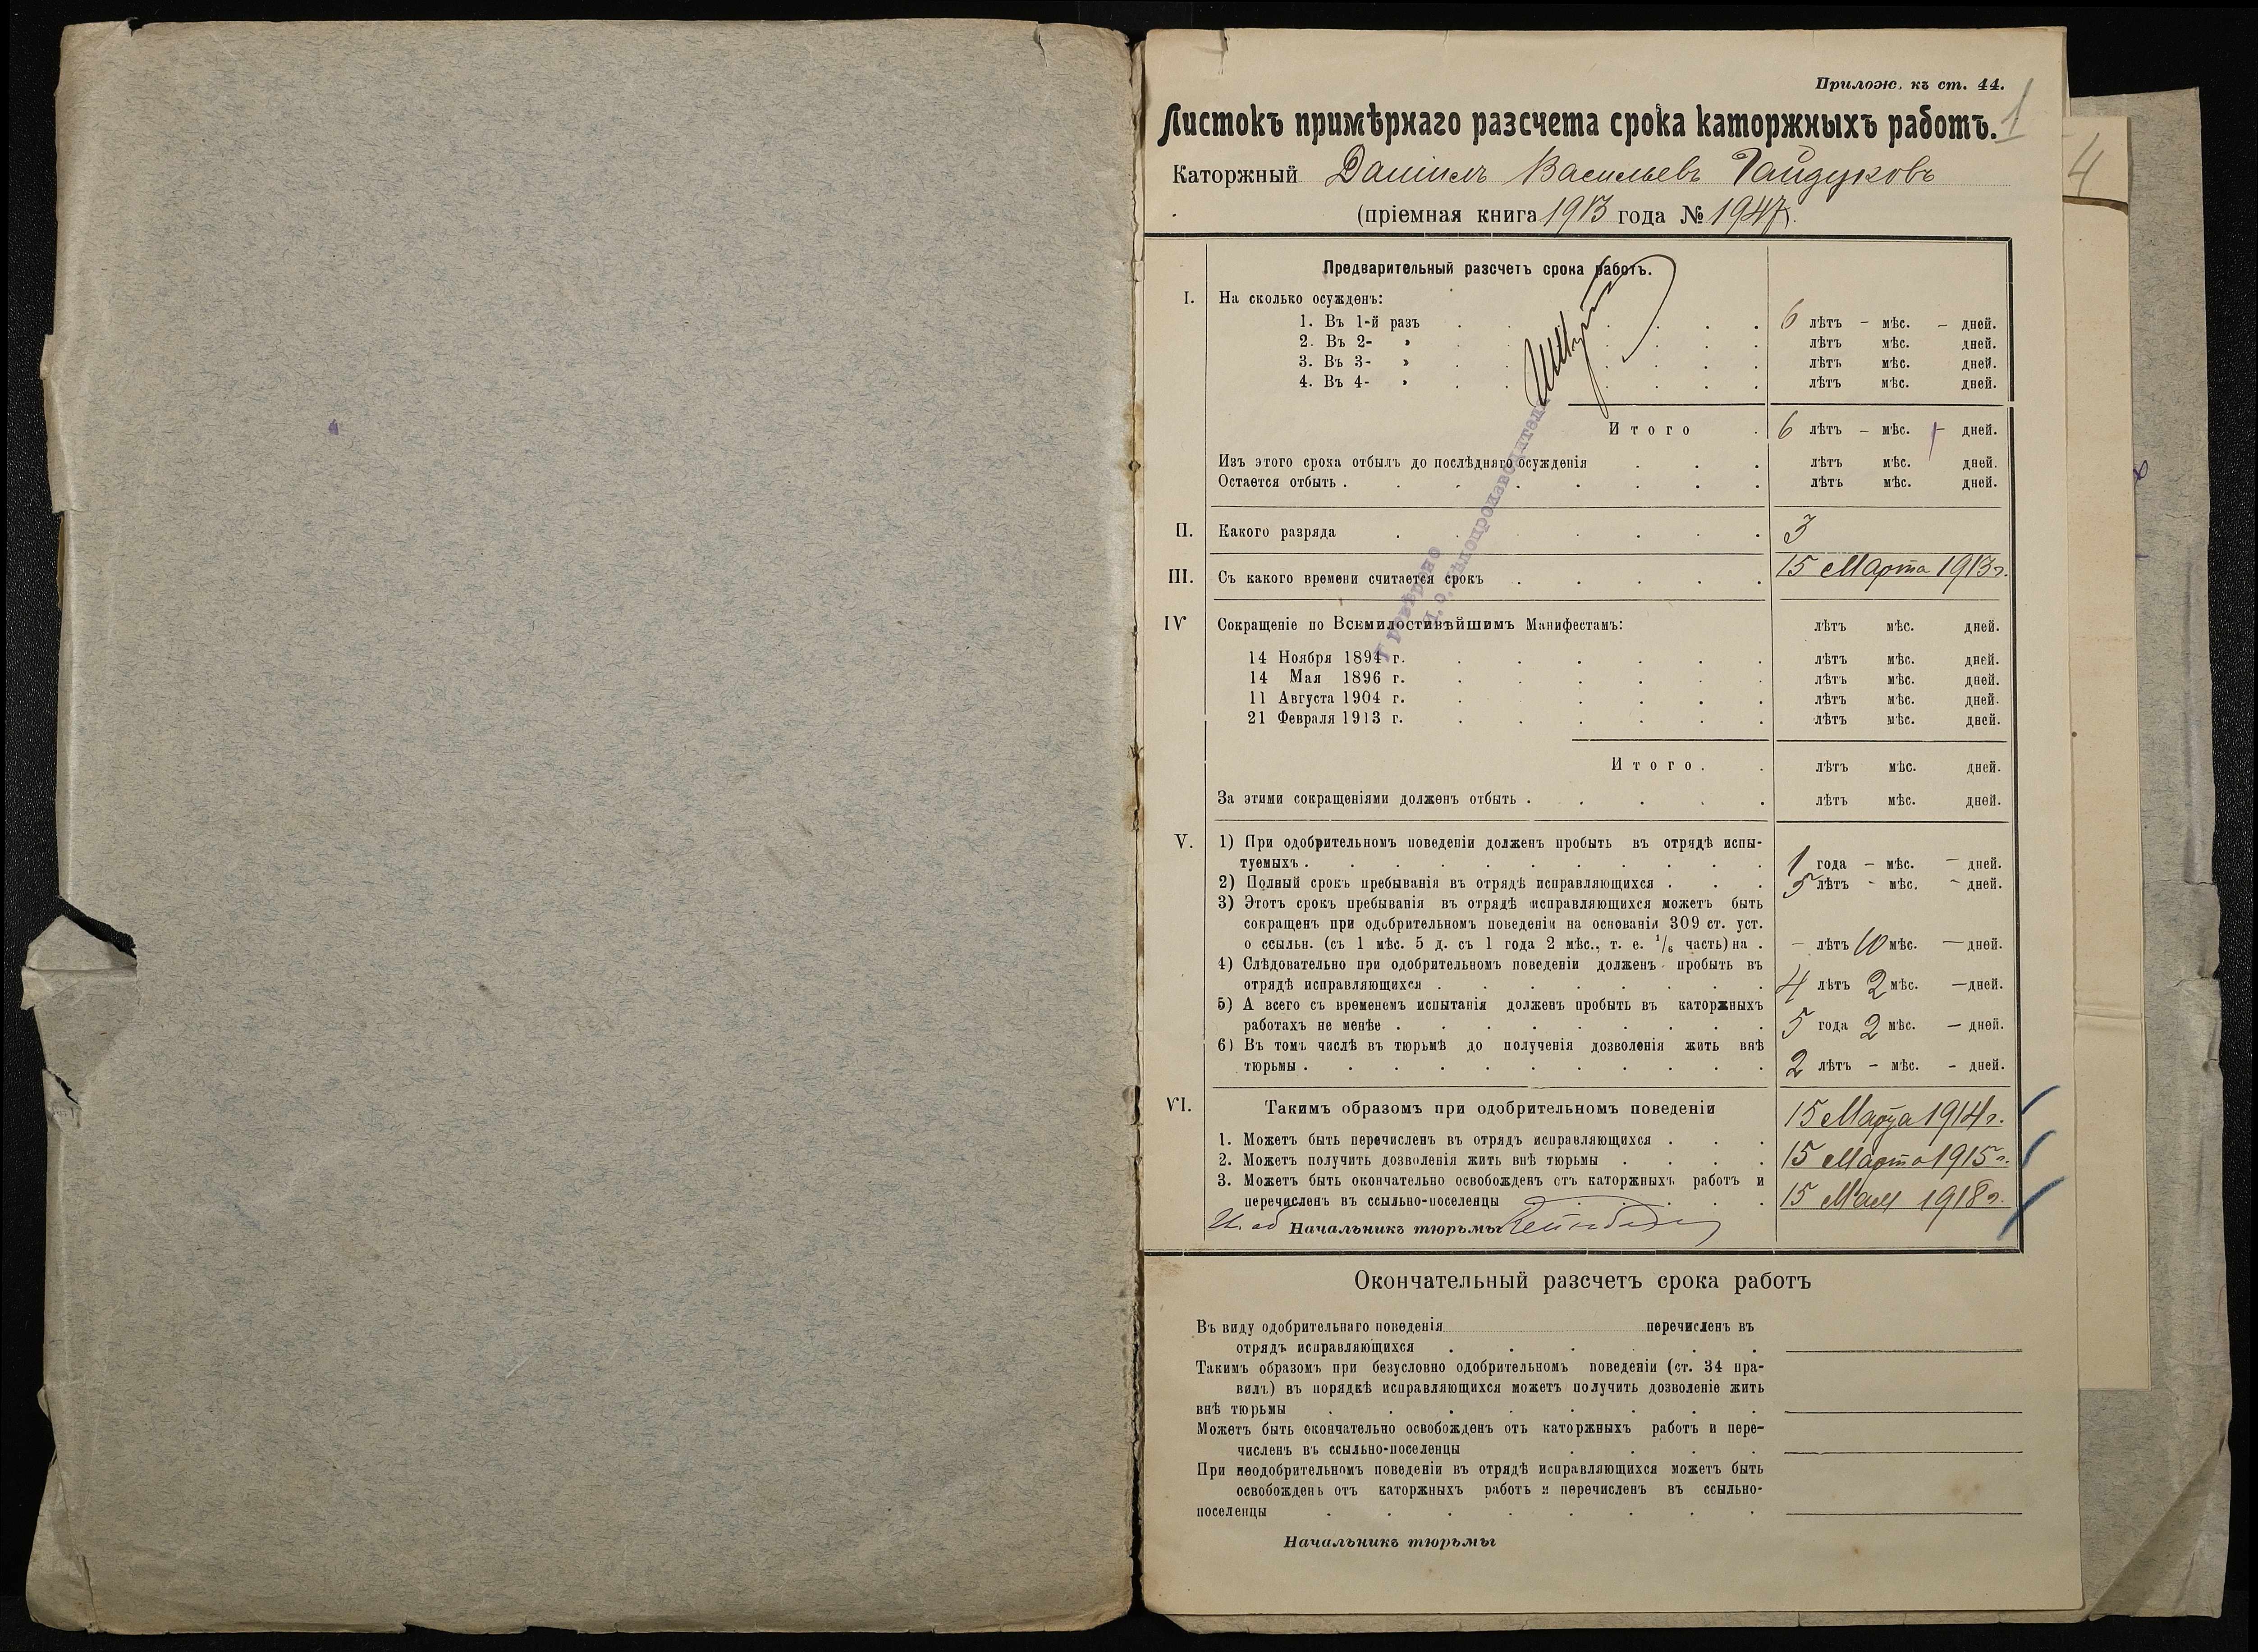 Прилож. къ ст. 44.
1
Листокъ примѣрнаго разсчета срока каторжныхъ работъ.
4
Каторжный Данiилъ Васильевъ Гайдуковъ
(прiемная книга 1913 года № 1947).
Предварительный разсчетъ срока работъ.
I. На сколько осужденъ:
1. Въ 1-й разъ . . . . . . 6 лѣтъ – мѣс. – дней.
2. Въ 2- » . . . . . . лѣтъ мѣс. дней.
3. Въ 3- » . . . . . . лѣтъ мѣс. дней.
4. Въ 4- » . . . . . . лѣтъ мѣс. дней.
Итого . 6 лѣтъ – мѣс. – дней.
Изъ этого срока отбылъ до послѣдняго осужденiя . . . лѣтъ мѣс. дней.
Остается отбыть . . . . . . . . лѣтъ мѣс. дней.
II. Какого разряда . . . . . . . 3
III. Съ какого времени считается срокъ . . . . . 15 Марта 1913 г.
Провѣрено
И. о. Дѣлопроизводителя
IV Сокращенiе по Всемилостивѣйшимъ Манифестамъ: лѣтъ мѣс. дней.
14 Ноября 1894 г. . . . . . . лѣтъ мѣс. дней.
14 Мая 1896 г. . . . . . . лѣтъ мѣс. дней.
11 Августа 1904 г. . . . . . . лѣтъ мѣс. дней.
21 Февраля 1913 г. . . . . . . лѣтъ мѣс. дней.
Итого. . лѣтъ мѣс. дней.
За этими сокращенiями долженъ отбыть . . . . . лѣтъ мѣс. дней.
V. 1) При одобрительномъ поведенiи долженъ пробыть въ отрядѣ испы-
туемыхъ . . . . . . . . . . . 1 года – мѣс. – дней.
2) Полный срокъ пребыванiя въ отрядѣ исправляющихся . . . 5 лѣтъ - мѣс. – дней.
3) Этотъ срокъ пребыванiя въ отрядѣ исправляющихся можетъ быть
сокращенъ при одобрительномъ поведенiи на основанiи 309 ст. уст.
о ссыльн. (съ 1 мѣс. 5 д. съ 1 года 2 мѣс., т. е. 1/6 часть) на . – лѣтъ 10 мѣс. — дней.
4) Слѣдовательно при одобрительномъ поведенiи долженъ пробыть въ
отрядѣ исправляющихся . . . . . . . . 4 лѣтъ 2 мѣс. — дней.
5) А всего съ временемъ испытанiя долженъ пробыть въ каторжныхъ
работахъ не менѣе . . . . . . . . . 5 года 2 мѣс. – дней.
6) Въ томъ числѣ въ тюрьмѣ до полученiя дозволенiя жить внѣ
тюрьмы . . . . . . . . . . . 2 лѣтъ – мѣс. - дней.
VI. Такимъ образомъ при одобрительномъ поведенiи
1. Можетъ быть перечисленъ въ отрядъ исправляющихся . . . 15 Марта 1914 г.
2. Можетъ получить дозволенiя жить внѣ тюрьмы . . . . 15 Марта 1915 г.
3. Можетъ быть окончательно освобожденъ отъ каторжныхъ работъ и
перечисленъ въ ссыльно-поселенцы . . . . 15 Мая 1918 г.
И. об Начальникъ тюрьмы
Окончательный разсчетъ срока работъ
Въ виду одобрительнаго поведенiя перечисленъ въ
отрядъ исправляющихся . . . . . .
Такимъ образомъ при безусловно одобрительномъ поведенiи (ст. 34 пра-
вилъ) въ порядкѣ исправляющихся можетъ получить дозволенiе жить
внѣ тюрьмы . . . . . . . .
Можетъ быть окончательно освобожденъ отъ каторжныхъ работъ и пере-
численъ въ ссыльно-поселенцы . . . .
При неодобрительномъ поведенiи въ отрядѣ исправляющихся можетъ быть
освобожденъ отъ каторжныхъ работъ и перечисленъ въ ссыльно-
поселенцы . . . . . . . .
Начальникъ тюрьмы